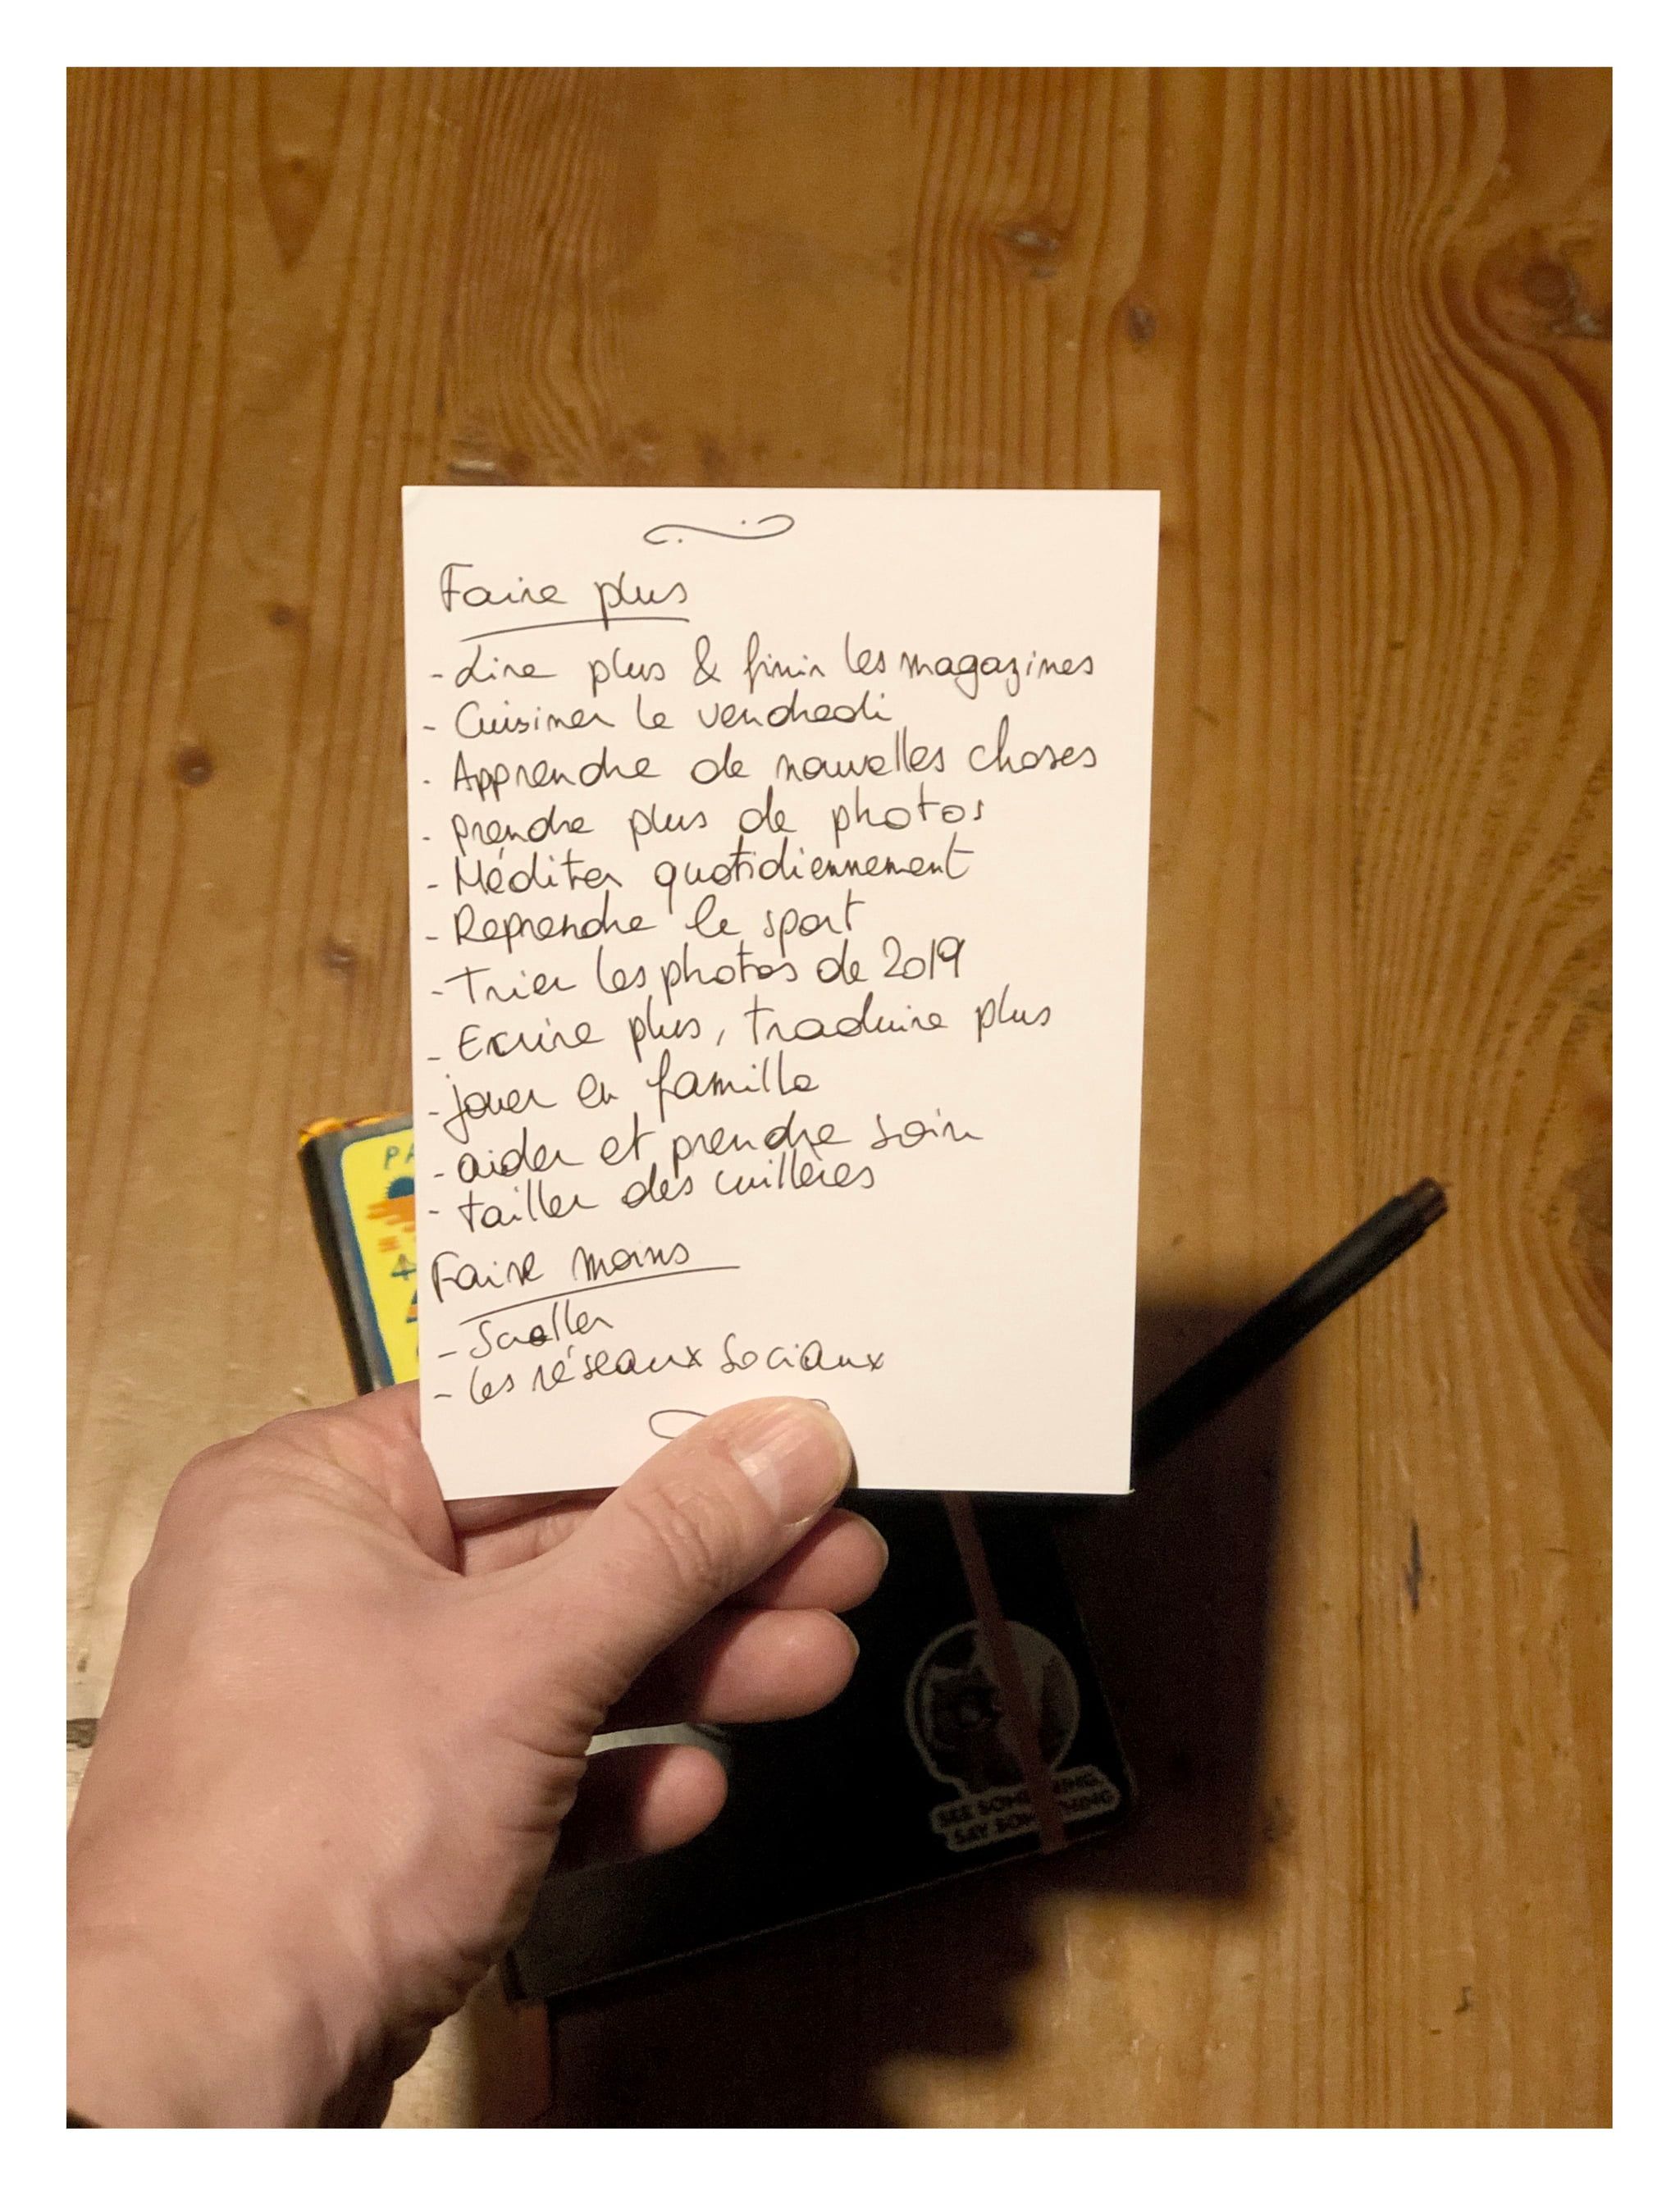 Faire plus
- Lire plus & finir les magazines
- Cuisiner le vendredi
- Apprendre de nouvelles choses
- prendre plus de photos
- Méditer quotidiennement
- Reprendre le sport
- Trier les photos de 2019
- Ecrire plus, traduire plus
- jouer en famille
- aider et prendre soin
- tailler des cuillères
Faire moins
- Scroller
- les réseaux sociaux
PA
SEE SOME HING
SAY SOM THING